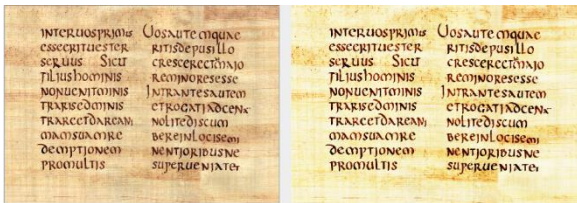 INTERUOSPRIMUS
ESSEERITUESTER
SERUUS SICUT
FILIUSHOMINIS
NONUENITMINIS
TRARISEDMINIS
TRARE
MAMSUAMRE
DEMPTIONEM
PROMULTIS
UOSAUTEMQUAE
RITISDEPUSILLO
CRESCERE
REMINORESESSE
INTRANTESAUTEM
ETROGATIADCEN
NOLITEDISCUM
BEREINLOCISEMI
NENTIORIBUSNE
SUPERUENIATET
INTERUOSPRIMUS
ESSEERITUESTER
SERUUS SICUT
FILIUSHOMINIS
NONUENITMINIS
TRARISEDMINIS
TRARE
MAMSUAMRE
DEMPTIONEM
PROMULTIS
UOSAUTEMQUAE
RITISDEPUSILLO
CRESCERE
REMINORESESSE
INTRANTESAUTEM
ETROGATIADCEN
NOLITEDISCUM
BEREINLOCISEMI
NENTIORIBUSNE
SUPERUENIATET